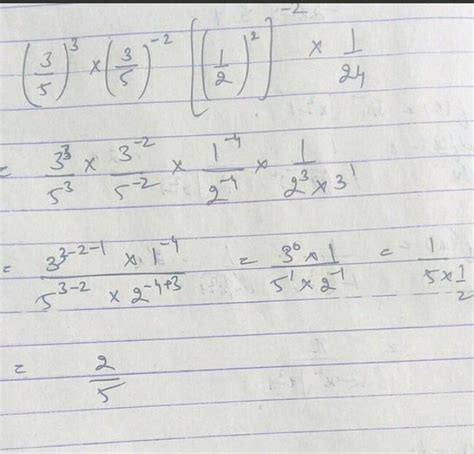 (3/5)³ × (3/5)⁻² [(1/2)²]⁻² × 1/24
= 3³/5³ × 3⁻²/5⁻² × 1⁻⁴/2⁻⁴ × 1/2³×3¹
= 3³⁻²⁻¹ × 1⁻⁴/5³⁻² × 2⁻⁴⁺³ = 3⁰×1/5¹×2⁻¹ = 1/5×1/2
= 2/5